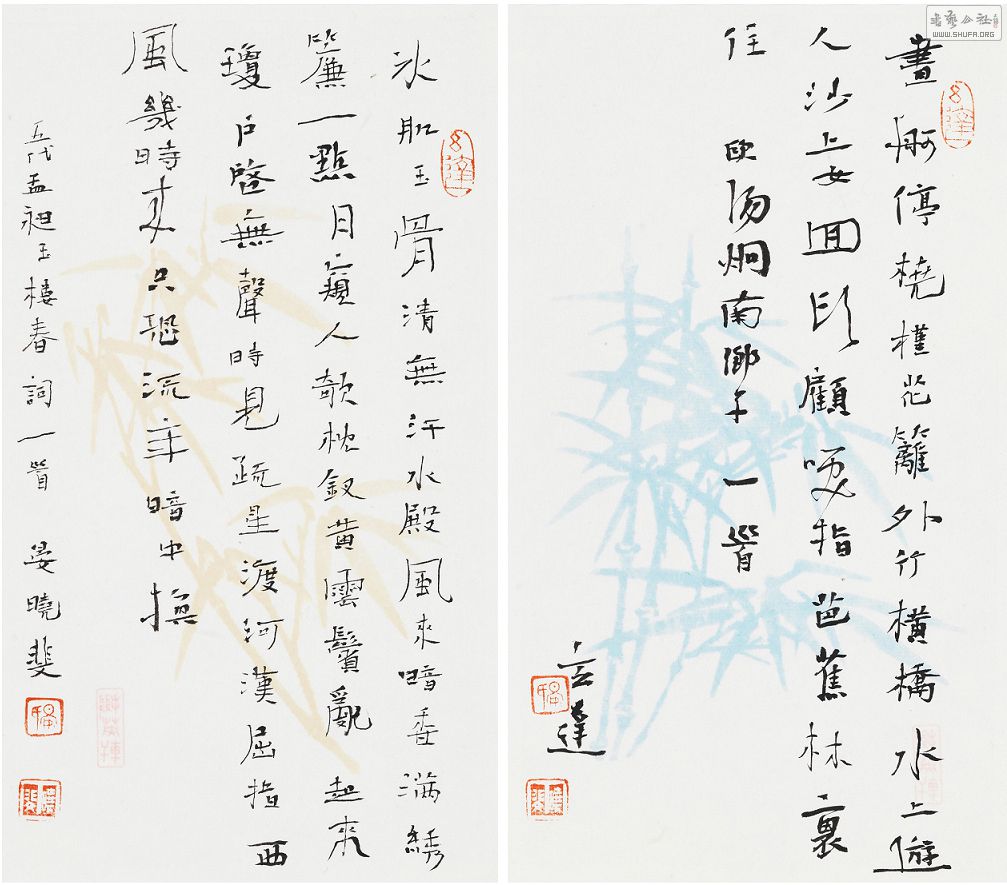 畫舸停橈槿花籬外竹橫橋水上遊
人沙上女囬顧笑指芭蕉林裏
住 歐陽炯南鄉子一首
玄達
冰肌玉骨清無汗水殿風來暗香滿繡
簾一點月窺人欹枕釵黃雲鬢亂起來
瓊戶啓無聲時見疏星渡河漢屈指西
風幾時來只恐流年暗中換
五代孟昶玉樓春詞一首 晏曉斐
書藝公社
WWW.SHUFA.ORG